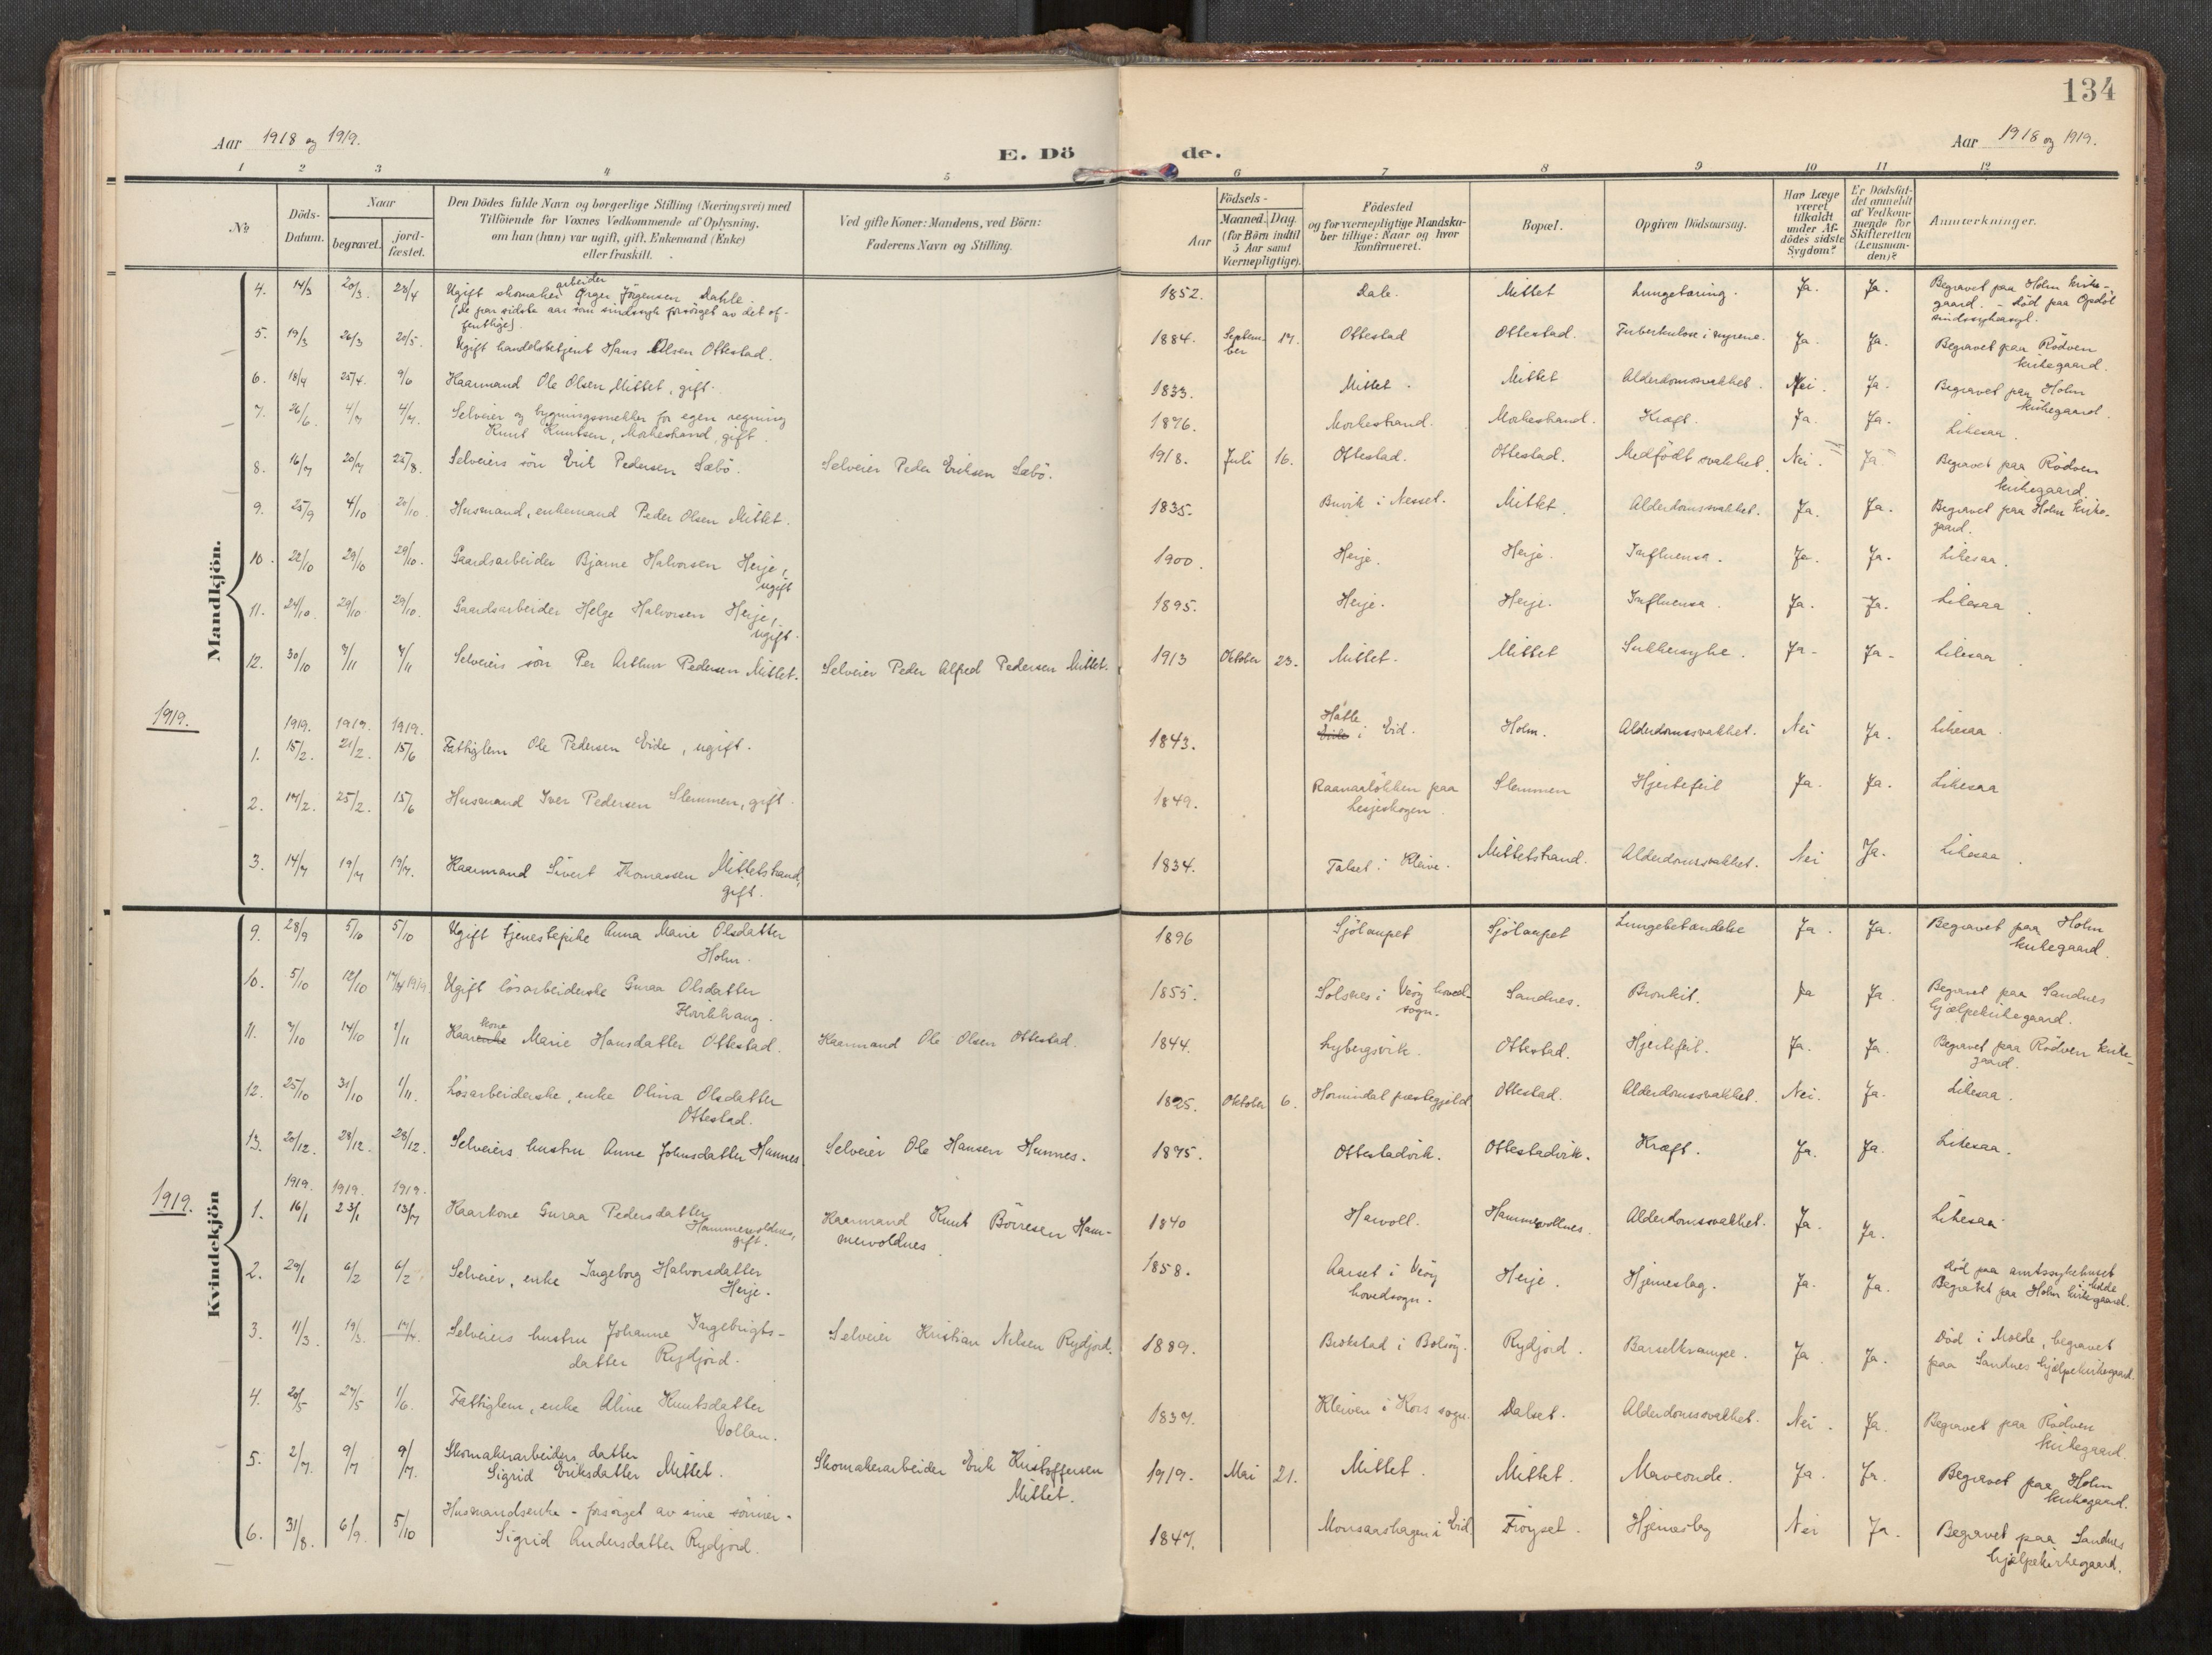 134
Aar 1918 og 1919.
E. Dö
de.
Aar 1918 og 1919.
1 2 3 4 5 6 7 8 9 10 11 12
No
Döds-Datum.
Naar
begravet.
jord-fæstet.
Den Dödes fulde Navn og borgerlige Stilling (Næringsvei) med
Tilföiende for Voxnes Vedkommende af Oplysning,
om han (hun) var ugift, gift, Enkemand (Enke)
eller fraskilt.
Ved gifte Koner: Mandens, ved Börn:
Faderens Navn og Stilling.
Aar
Födsels-
Maaned. Dag.
(for Börn indtil
5 Aar samt
Værnepligtige).
Födested
og for værnepligtige Mandska-
ber tillige: Naar og hvor
Konfirmeret.
Bopæl.
Opgiven Dödsaarsag.
Har Læge
været
tilkaldt
under Af-
dödes sidste
Sygdom?
Er Dödsfal-
det anmeldt
af Vedkom-
mende for
Skifteretten
(Lensman-
den)?
Anmærkninger.
Mandkjön.
4. 14/3 20/3. 28/4 Ugift skomakerarbeider Jörgensen Dahle. 1852. Dale. Mittet Lungetæring. Ja. Ja. Begravet paa Holm kirke-
(De par sidste aar som sindssyk forsörget av det of-
fentlige). gaard. - Död paa Opdöl
sindssykeasyl.
5. 19/3 26/3 20/5. Ugift handelsbetjent Hans Olsen Ottestad. 1884. Septem-
ber 17. Ottestad Ottestad. Tuberkulose i nyrene. Ja. Ja. Begravet paa Rödven
kirkegaard.
6. 18/4 25/4. 9/6 Kaarmand Ole Olsen Mittet, gift. 1833. Mittet. Mittet Alderdomssvakhet. Nei. Ja. Begravet paa Holm
kirkegaard.
7. 26/6. 4/7 4/7. Selveier og bygningssnekker for egen regning
Knut Knutsen, Morkestrand, gift. 1876. Morkestrand. Morkestrand. Kræft. Ja. Ja. Likesaa.
8. 16/7 20/7 25/8. Selveiers sön Erik Pedersen Sæbö. Selveier Peder Eriksen Sæbö. 1918. Juli 16. Ottestad. Ottestad. Medfödt svakhet. Nei. Ja. Begravet paa Rödven
kirkegaard.
9. 25/9 4/10 20/10. Husmand, enkemand Peder Olsen Mittet. 1835. Buvik i Nesset. Mittet. Alderdomssvakhet. Ja. Ja. Begravet paa Holm kirke-
gaard.
10. 22/10 29/10 29/10. Gaardsarbeider Bjarne Halvorsen Herje,
ugift 1900. Herje. Herje. Influensa. Ja. Ja. Likesaa.
11. 24/10. 29/10. 29/10. Gaardsarbeider Helge Halvorsen Herje,
ugift. 1895. Herje. Herje. Influensa. Ja. Ja. Likesaa.
12. 30/10 7/11 7/11 Selveiers sön Per Arthur Pedersen Mittet. Selveier Peder Alfred Pedersen Mittet. 1913 Oktober 23. Mittet. Mittet Sukkersyke. Ja- Ja- Likesaa.
1919.
1919. 1919. 1919.
1. 15/2. 21/2. 15/6 Fattiglem Ole Pedersen Eide, ugift. 1843. Hatle
Eide i Eid. Holm. Alderdomssvakhet. Nei Ja. Likesaa.
2. 17/2. 25/2. 15/6 Husmand Iver Pedersen Slemmen, gift. 1849. Raanaalökken paa
Lesjeskogen. Slemmen Hjertefeil Ja. Ja. Likesaa
3. 14/7 19/7 19/7. Kaarmand Sivert Thomassen Mittetstrand,
gift. 1834. Talset i Kleive. Mittetstrand. Alderdomssvakhet. Nei Ja. Likesaa.
Kvindekjön
9. 28/9 5/10 5/10 Ugift tjenestepike Anna Marie Olsdatter
Holm. 1896 Sjölaupet Sjölaupet Lungebetændelse Ja. Ja. Begravet paa Holm
kirkegaard.
10. 5/10 12/10 1919. Ugift lösarbeiderske Guraa Olsdatter 1855. Solsnes i Veöy hoved-
sogn. Sandnes. Bronkit. Ja Ja. Begravet paa Sandnes
hjælpekirkegaard.
11. 7/10 14/10 1/11 Kaarenke kone Marie Hansdatter Ottestad. Kaarmand Ole Olsen Ottestad. 1844. Lybergsvik. Ottestad. Hjertefeil. Ja. Ja. Begravet paa Rödven kirke-
gaard.
12. 25/10 31/10 1/11. Lösarbeiderske, enke Olina Olsdatter
Ottestad. 1825. Oktober 6. Hornindal prestegjeld Ottestad. Alderdomssvakhet. Nei. Ja. Likesaa.
13. 20/12. 28/12. 28/12. Selveiers hustru Anne Johnsdatter Hunnes. Selveier Ole Hansen Hunnes. 1875. Ottestadvik. Ottestadvik. Kræft. Ja. Ja. Likesaa.
1919.
1919. 1919. 1919.
1. 16/1 23/1 13/7 Kaarkone Guraa Pedersdatter
Hammervoldnes,
gift. Kaarmand Knut Börresen Ham-
mervoldnes. 1840 Havoll. Hammervollnes. Alderdomssvakhet. Ja. Ja. Likesaa
2. 29/1 6/2 6/2 Selveier, enke Ingeborg Halvorsdatter
Herje. 1858. Aarset i Veöy
hovedsogn. Herje. Hjerneslag. Ja. Ja. Död paa amtssykehuset
i Molde
Begravet paa Holm kirkegaard.
3. 11/3. 19/3. Selveiers hustru Johanne Ingebrigts-
datter Rydjord. Selveier Kristian Nilsen Rydjord. 1889. Brokstad i Bolsöy. Rydjord. Barselkrampe. Ja. Ja. Död i Molde, begravet
paa Sandnes hjælpekirkegaard.
4. 20/5 27/5 1/6. Fattiglem, enke Aline Knutsdatter
Vollan. 1837. Kleiven i Kors sogn. Dalset. Alderdomssvakhet. Nei. Ja. Begravet paa Rödven
kirkegaard.
5. 2/7. 9/7 9/7. Skomakerarbeiders datter
Sigrid Eriksdatter Mittet. Skomakerarbeider Erik Kristoffersen
Mittet. 1919. Mai 21. Mittet. Mittet. Maveonde. Ja. Ja. Begravet paa Holm
kirkegaard.
6. 31/8. 6/9. 5/10 Husmandsenke - forsörget av sine sönner -
Sigrid Andersdatter Rydjord. 1847. Monsaashagen i Eid. Fröyset. Hjerneslag Nei Ja. Begravet paa Sandnes
hjælpekirkegaard.